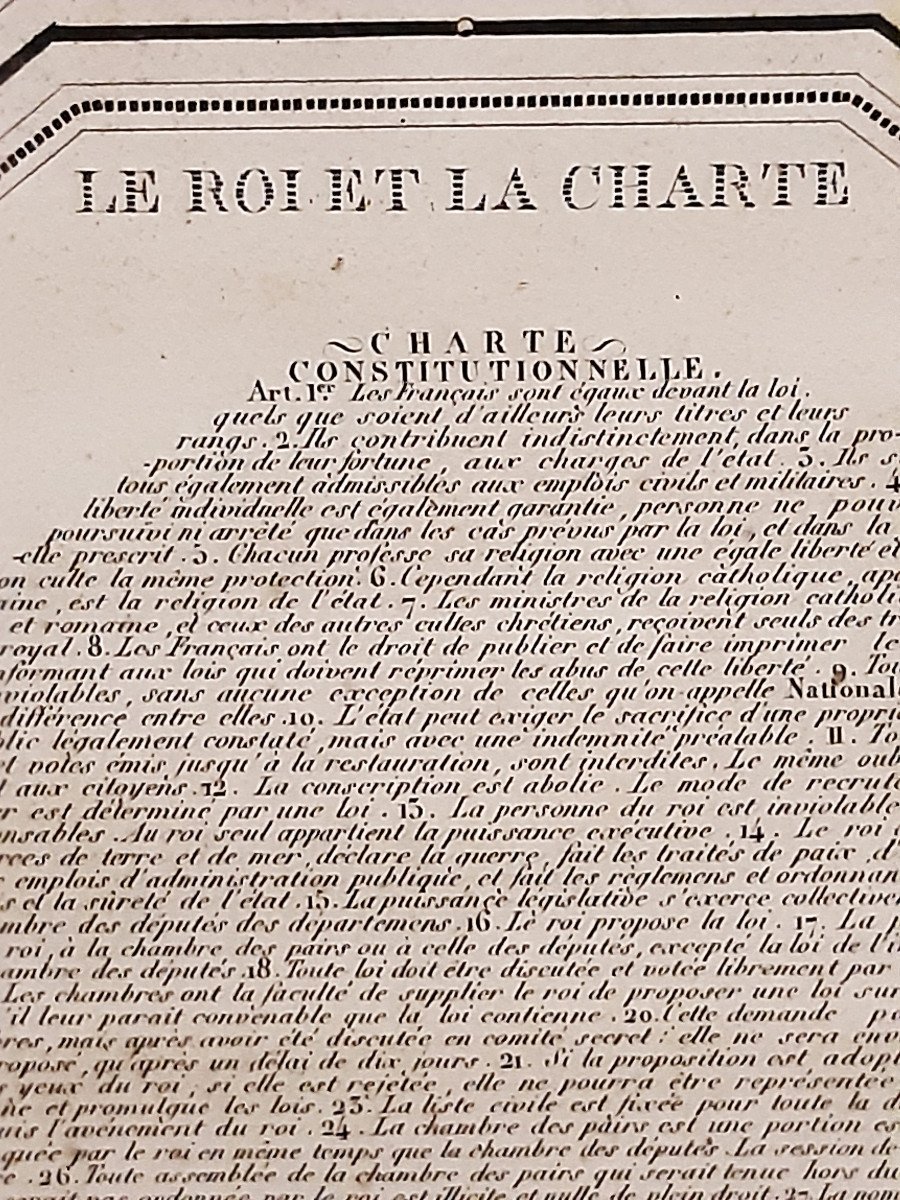 LE ROI ET LA CHARTE
CHARTE
CONSTITUTIONNELLE.
Art. 1er Les Français sont égaux devant la loi.
quels que soient d'ailleurs leurs titres et leurs
rangs. 2. Ils contribuent indistinctement, dans la pro-
-portion de leur fortune, aux charges de l'état. 3. Ils s
tous également admissibles aux emplois civils et militaires. 4
liberté individuelle est également garantie, personne ne pouv
poursuivi ni arrêté que dans les cas prévus par la loi, et dans la
-elle prescrit. 5. Chacun professe sa religion avec une égale liberté et
on culte la même protection. 6. Cependant la religion catholique, apo
aine, est la religion de l'état. 7. Les ministres de la religion catholi
et romaine, et ceux des autres cultes chrétiens, reçoivent seuls des tr
royal. 8. Les Français ont le droit de publier et de faire imprimer le
nformant aux lois qui doivent réprimer les abus de celle liberté. 9. Tou
violables, sans aucune exception de celles qu'on appelle National
différence entre elles. 10. L'état peut exiger le sacrifice d'une proprié
blic légalement constaté, mais avec une indemnité préalable. 11. To
et votes émis jusqu'à la restauration, sont interdites. Le même oub
t aux citoyens. 12. La conscription est abolie. Le mode de recrute
r est déterminé par une loi. 13. La personne du roi est inviolable
nsables. Au roi seul appartient la puissance exécutive. 14. Le roi
rces de terre et de mer, déclare la guerre, fait les traités de paix, d'
emplois d'administration publique, et fait les règlemens et ordonnan
s et la sûreté de l'état. 15. La puissance législative s'exerce collective
mbre des députés des départemens. 16. Le roi propose la loi. 17. La p
roi, à la chambre des pairs ou à celle des députés, excepté la loi de l'i
ambre des députés. 18. Toute loi doit être discutée et votée librement par
Les chambres ont la faculté de supplier le roi de proposer une loi sur
'il leur parait convenable que la loi contienne. 20. Cette demande po
res, mais après avoir été discutée en comité secret: elle ne sera env
roposé, qu'après un délai de dix jours. 21. Si la proposition est adopt
s yeux du roi; si elle est rejetée, elle ne pourra être représentée
ne et promulgue les lois. 23. La liste civile est fixée pour toute la d
uis l'avénement du roi. 24. La chambre des pairs est une portion es
quée par le roi en même temps que la chambre des députés. La session de
e. 26. Toute assemblée de la chambre des pairs qui serait tenue hors du
serait pas ordonnée par le roi est illicite et nulle de plein droit. 27. La nom